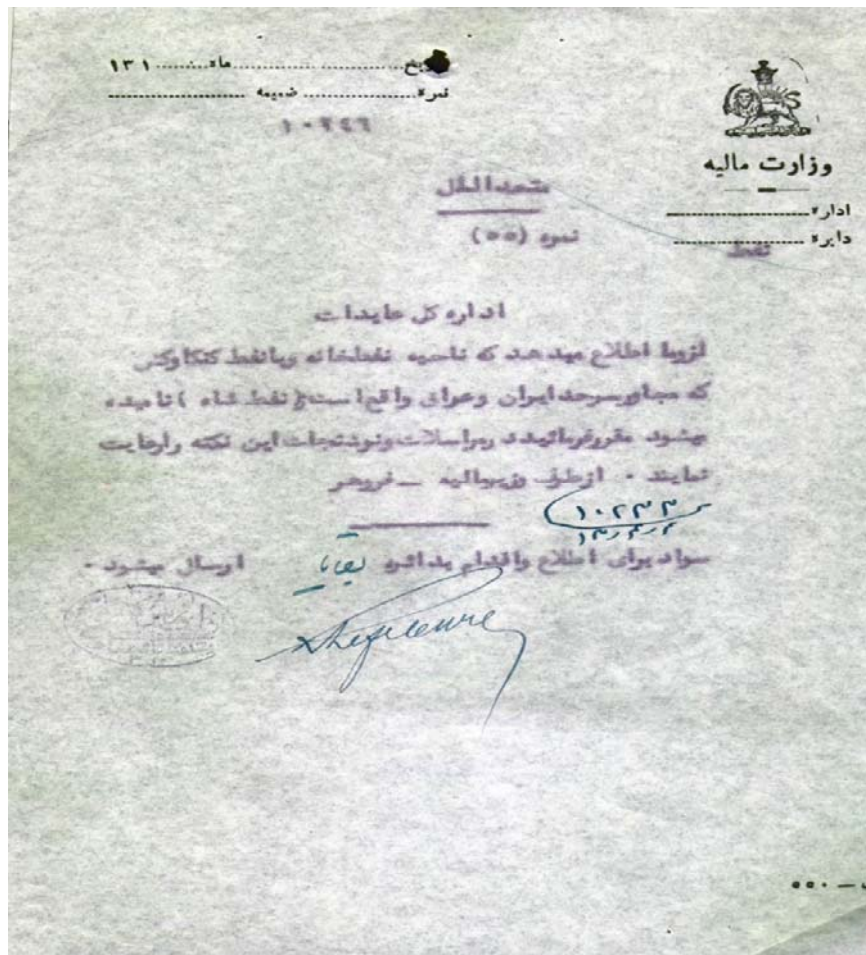 تاریخ ............ ماه ......... ۱۳۱
نمره ............ ضمیمه ............
۱۰۲۴۶
وزارت مالیه
اداره
دایره
نفط
متحدالمال
نمره (۵۵)
اداره کل عایدات
لزوما اطلاع میدهد که ناحیه نفطخانه ویانفط
که مجاورسرحد ایران وعراق واقع است (نفط شاه) نامیده
میشود مقررفرمائید در مراسلات ونوشتجات این نکته رارعایت
نمایند . ازطرف وزیرمالیه ــ فروهر
۱۰۲۳۳
سواد برای اطلاع واقدام بدائره بقایا ارسال میشود .
۵۵۰ ــ